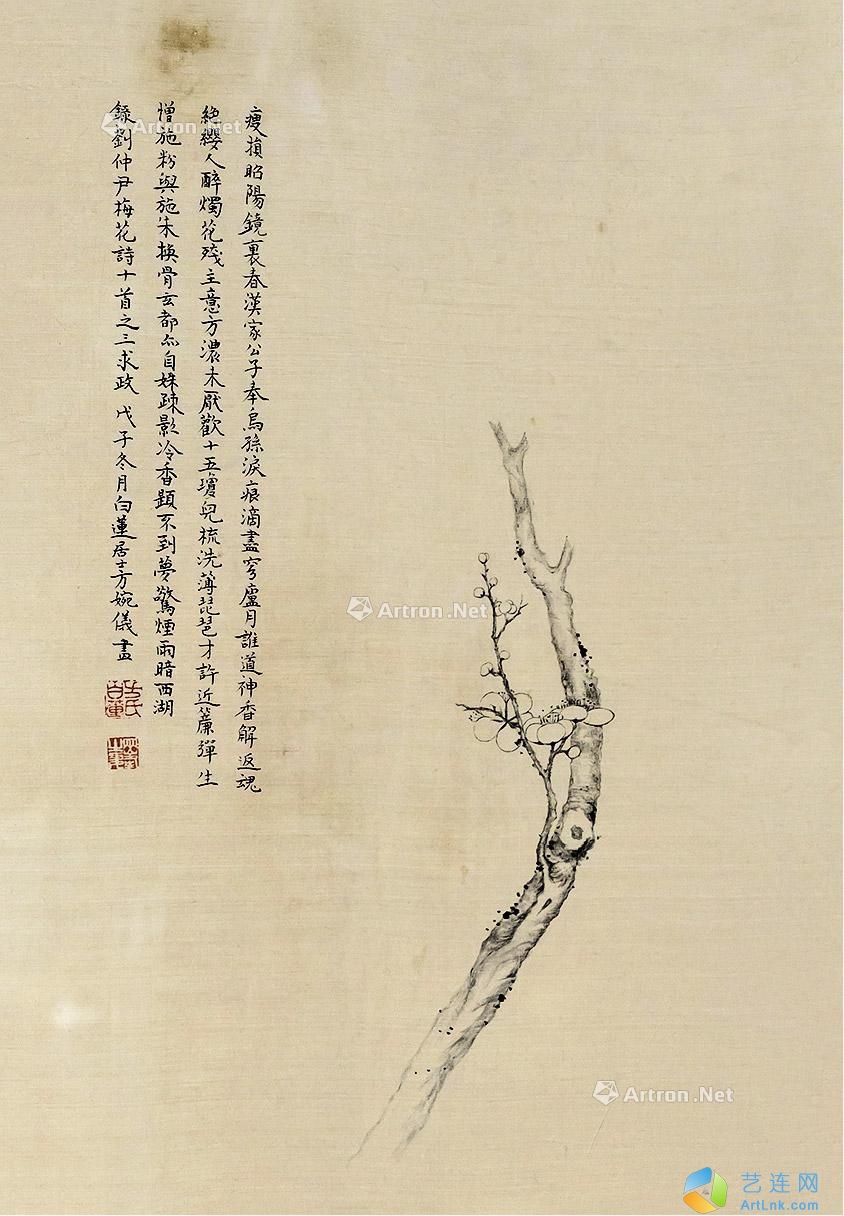 瘦損昭陽鏡裏春漢家公子奉烏孫淚痕滴盡穹廬月誰道神香解返魂
絕纓人醉燭花殘主意方濃未厭歡十五瓊兒梳洗薄琵琶才許近簾彈生
憎施粉與施朱換骨玄都亦自姝疎影冷香題不到夢驚煙雨暗西湖
錄劉仲尹梅花詩十首之三求政 戊子冬月白蓮居士方婉儀畫
方氏白蓮
Artron.Net
Artron.Net
Artron.Net
艺连网
ArtLnk.com